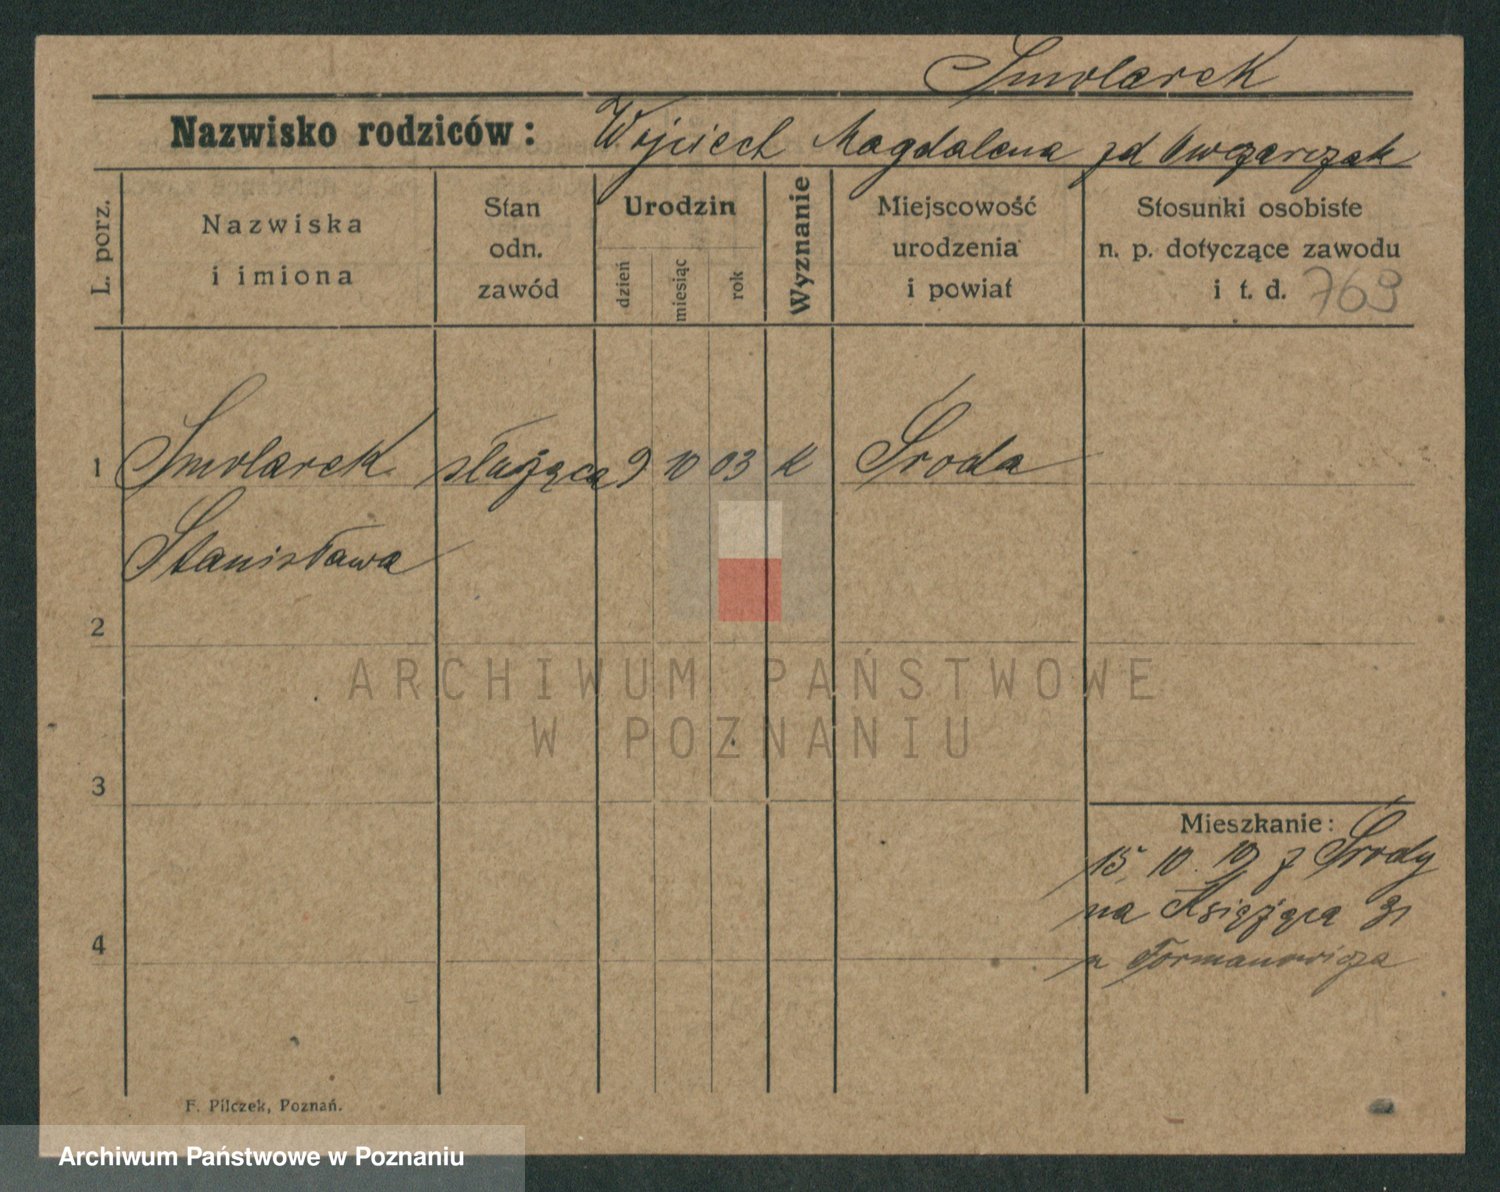 Smolarek
Nazwisko rodziców: Wojciech Magdalena zd Owczarczak
L. porz.
Nazwiska
i imiona
Stan
odn.
zawód
Urodzin
dzień
miesiąc
rok
Wyznanie
Miejscowość
urodzenia
i powiat
Stosunki osobiste
n. p. dotyczące zawodu
i t. d. 769
1 Smolarek służąca 9 10 03 K Środa
Stanisława
2
ARCHIWUM PAŃSTWOWE
W POZNANIU
3
Mieszkanie:
15. 10. 19 z Środy
na Książęcą 31
4
u Formanowicza
F. Pilczek, Poznań.
Archiwum Państwowe w Poznaniu